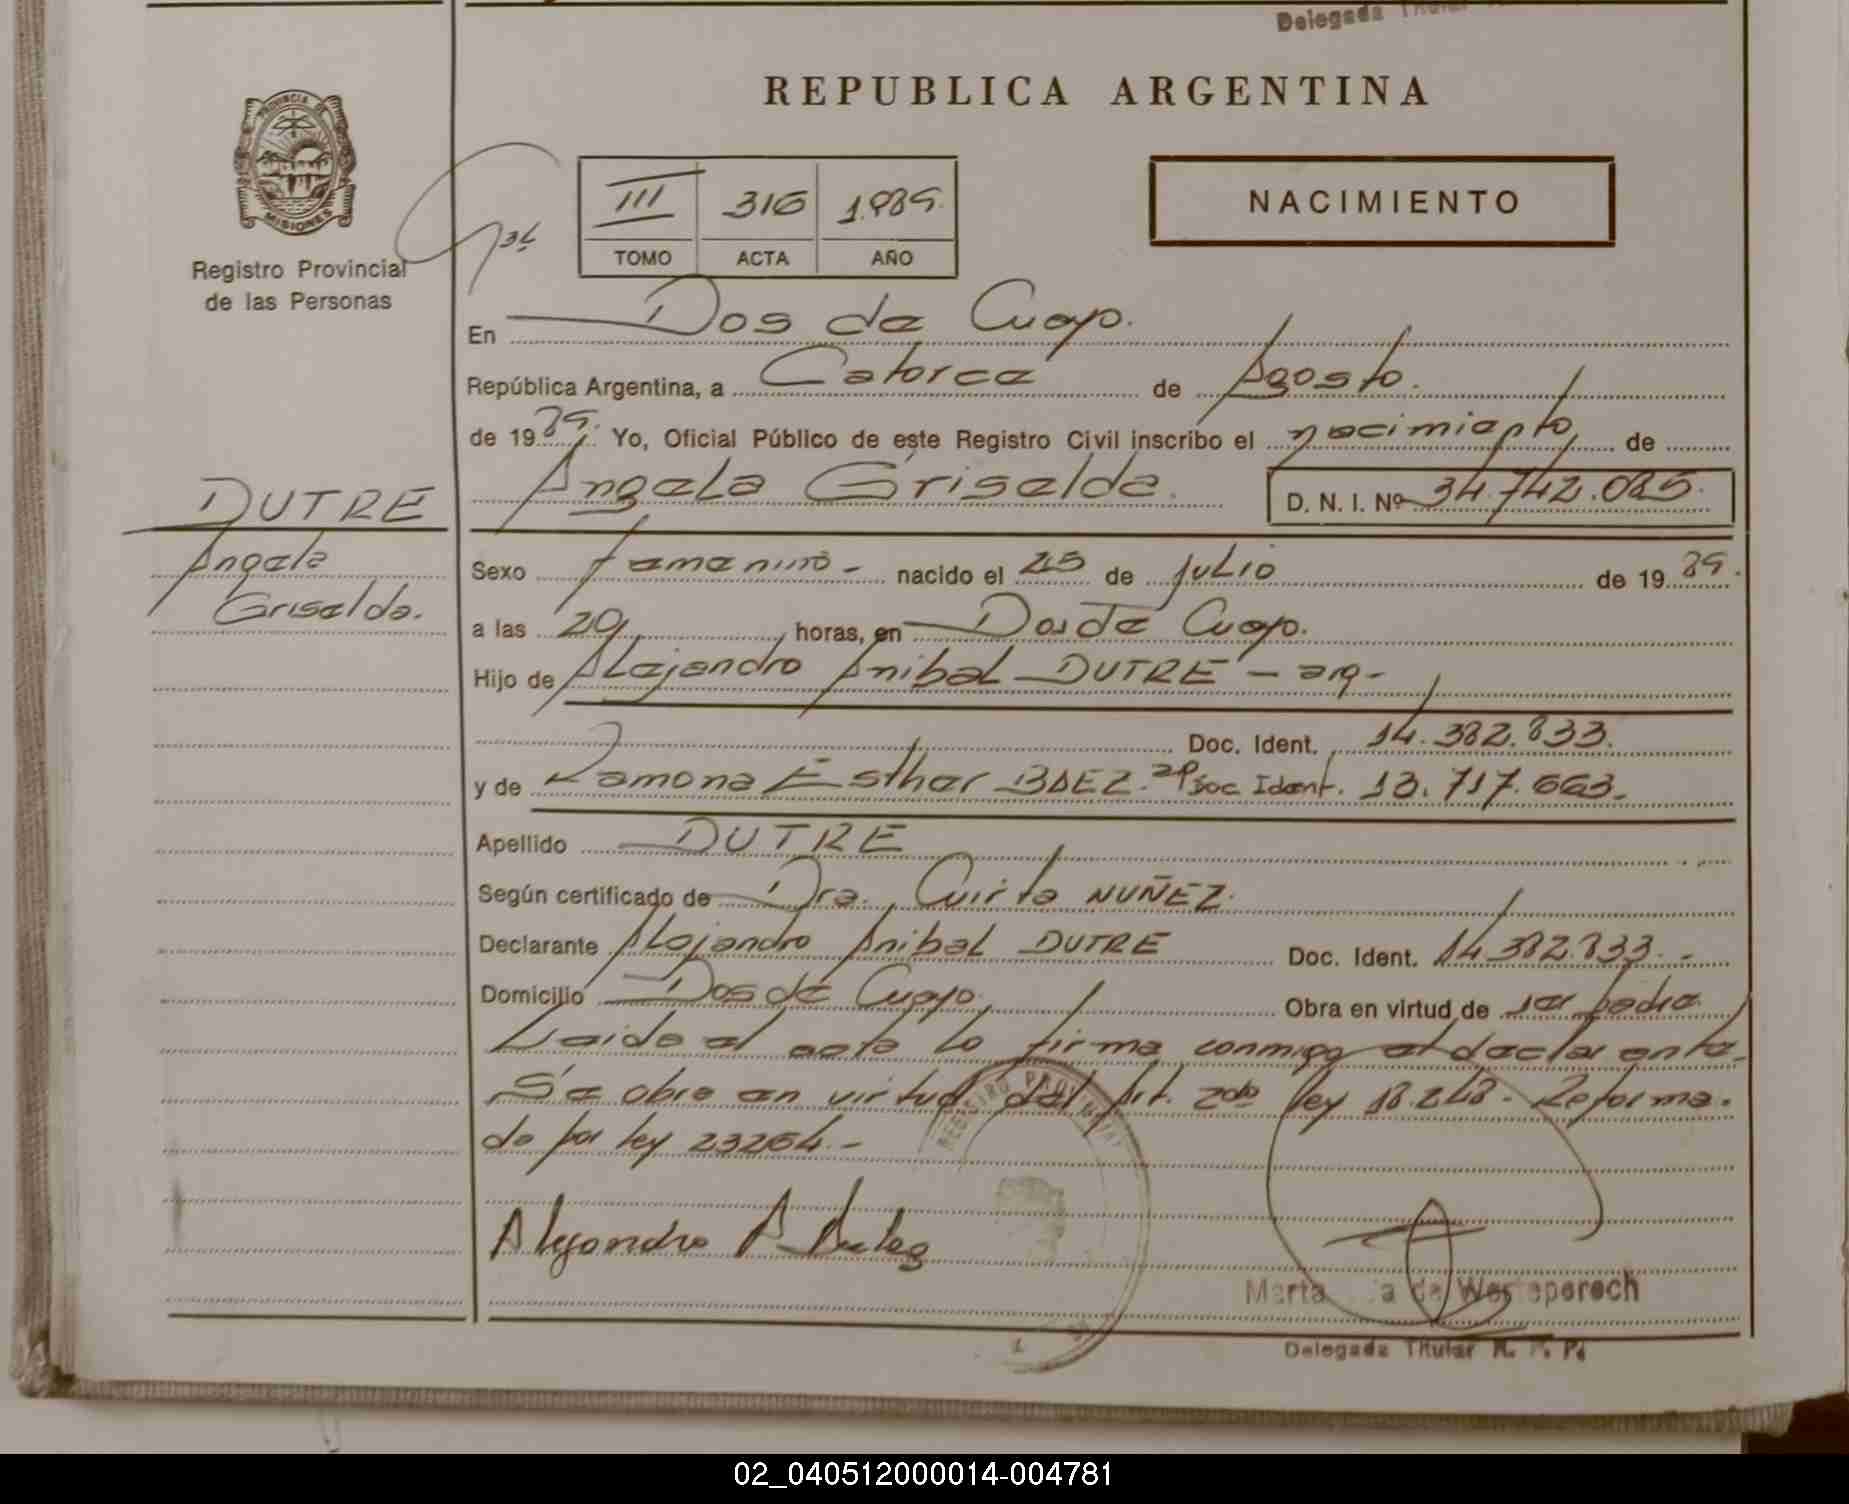 Delegada Titular
REPUBLICA ARGENTINA
PROVINCIA DE
MISIONES
Registro Provincial
de las Personas
III 316 1.989.
TOMO ACTA AÑO
NACIMIENTO
En Dos de Cuayo.
República Argentina, a Catorce de Agosto.
de 19 89. Yo, Oficial Público de este Registro Civil inscribo el nacimiento de
Angela Griselda. D. N. I. Nº 34.742.085.
DUTRE
Angela
Griselda.
Sexo femenino - nacido el 25 de julio de 19 89.
a las 20, horas, en Dos de Cuayo.
Hijo de Alejandro Anibal DUTRE - arg -
Doc. Ident. 14.382.833.
y de Ramona Esther BAEZ. Doc Ident. 13.717.663.
Apellido DUTRE
Según certificado de Dra. NUÑEZ.
Declarante Alejandro Anibal DUTRE Doc. Ident. 14.382.833. -
Domicilio Dos de Cuayo. Obra en virtud de ser padre.
Leida el acta lo firma conmigo el declarante.
Se obra en virtud del Art. 2do ley 18.248. Reforma.
do por ley 23264. -
REGISTRO PROVINCIAL
Alejandro A
Marta de
Delegada Titular R. P. P.
02_040512000014-004781